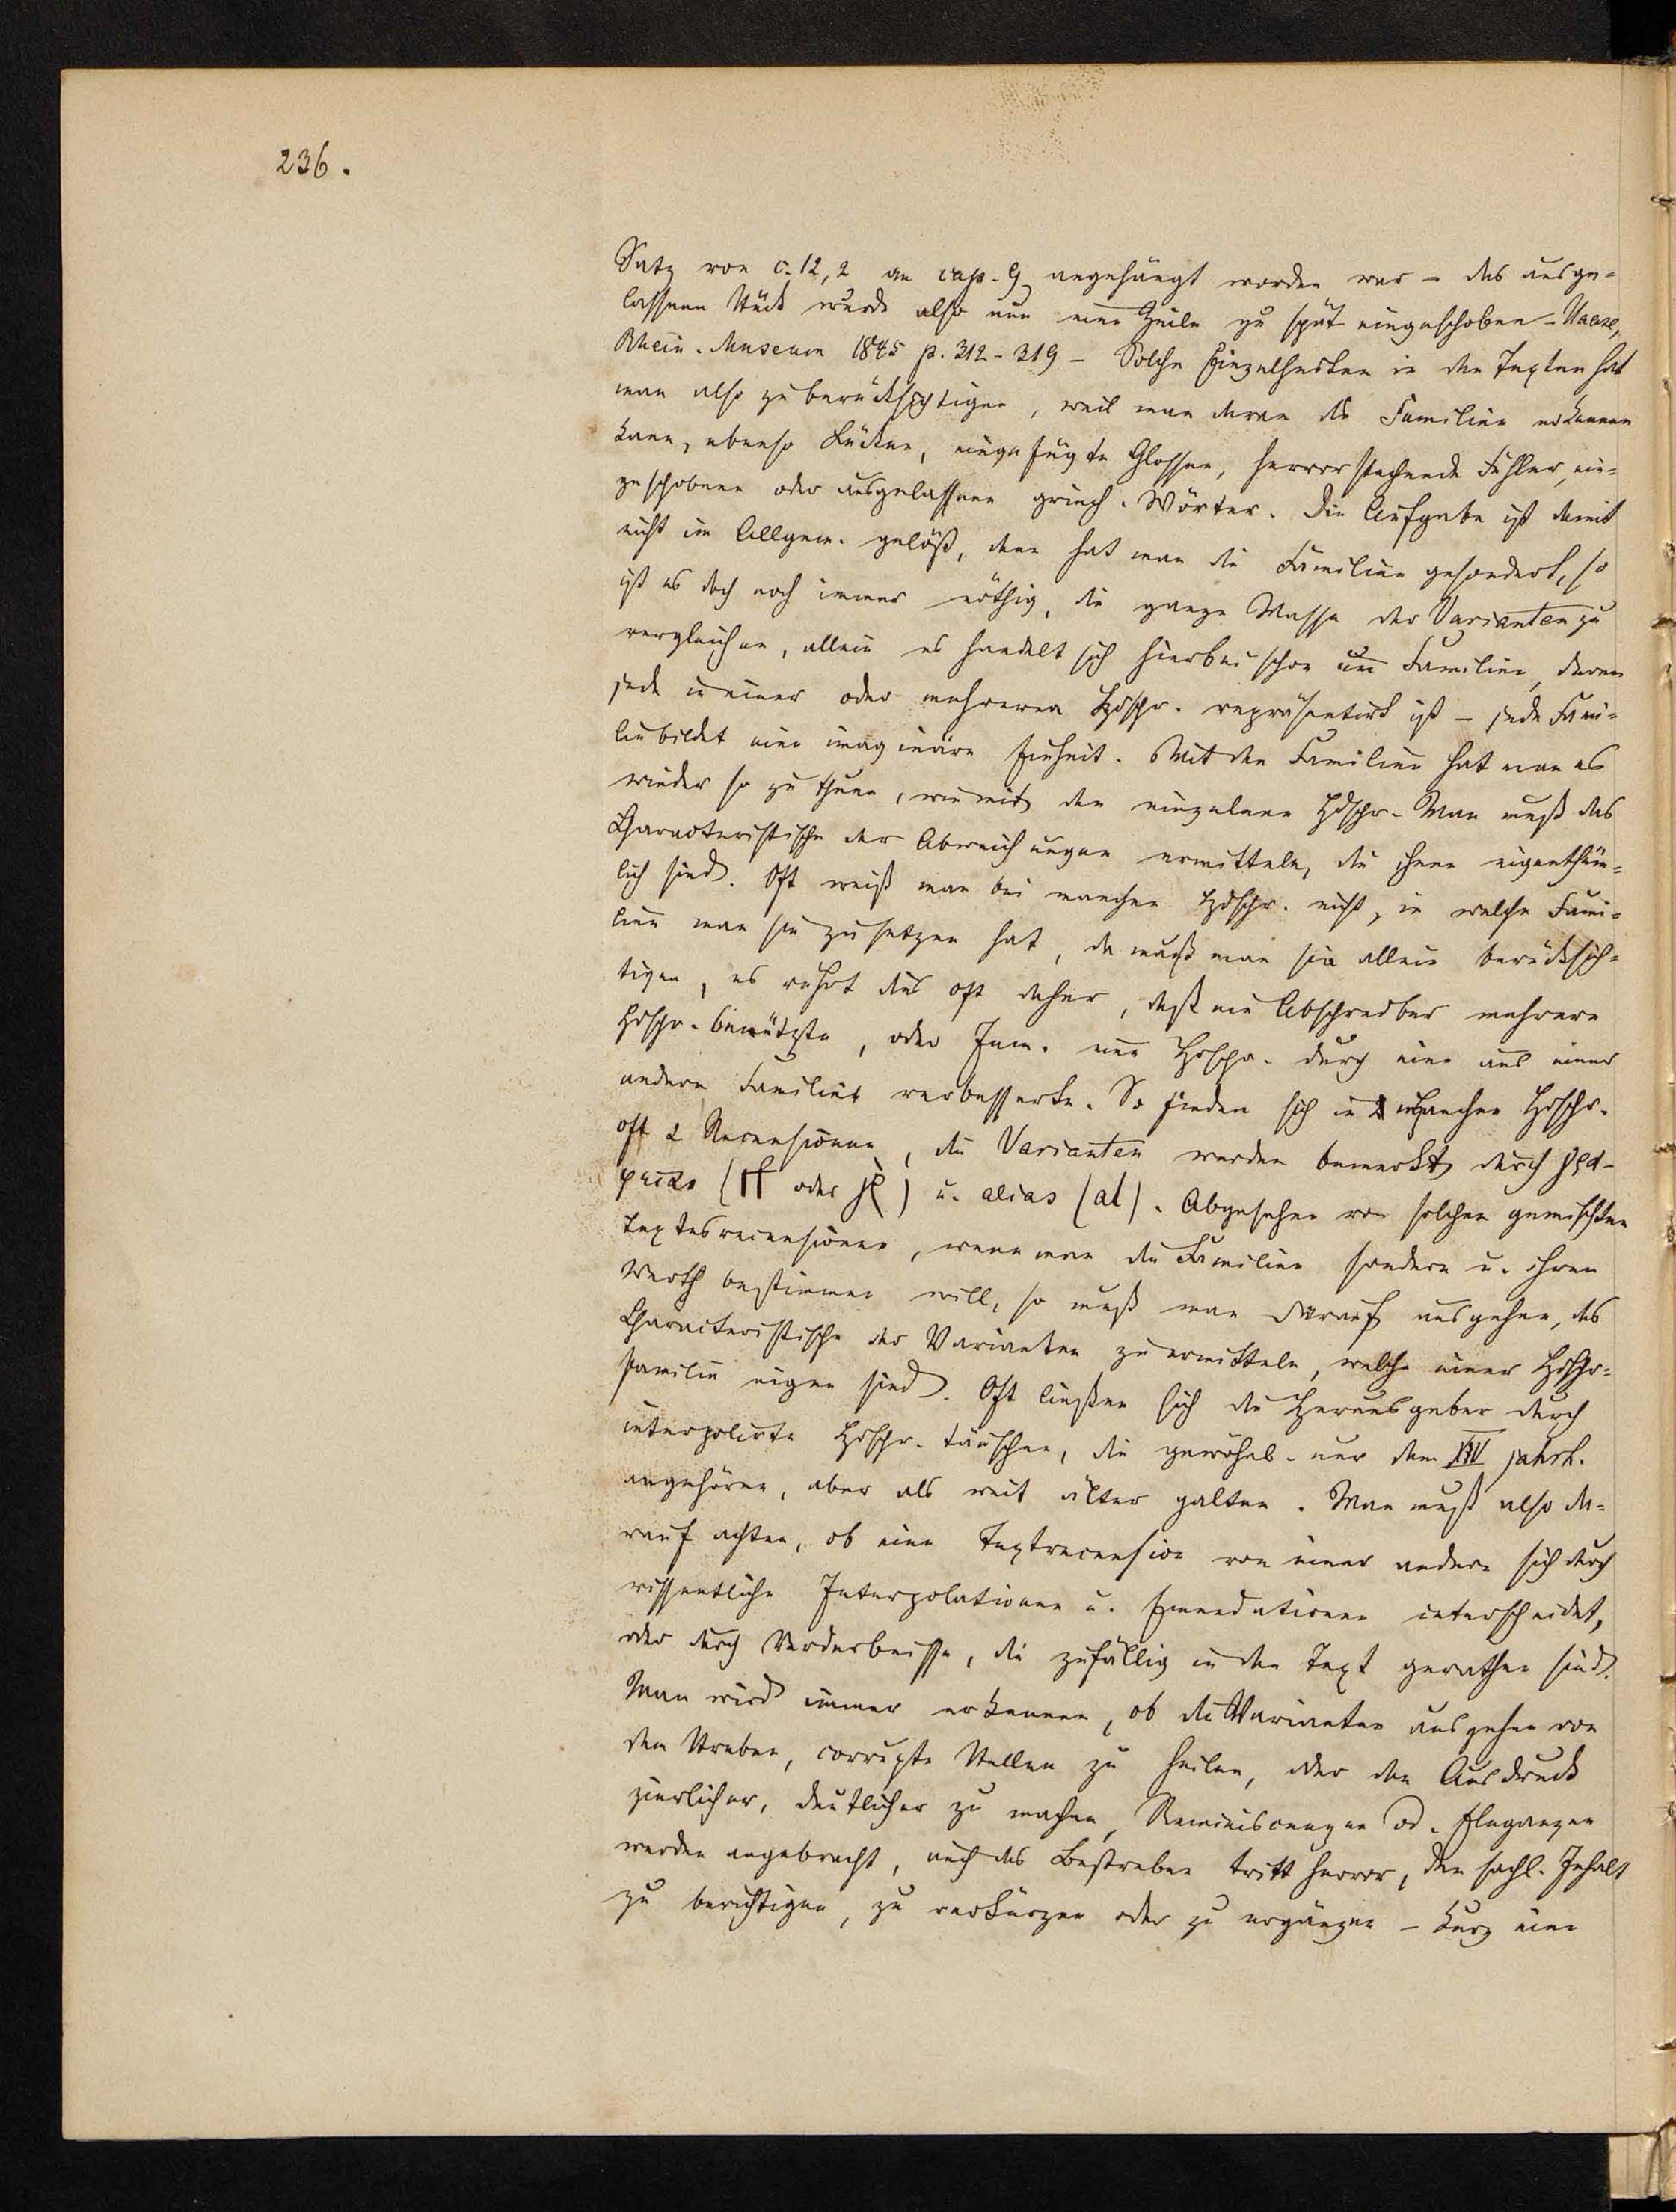 236.
Satz von c. 12, 2 an cap. 9 angehängt worden war – das ausge-
lassene Stück wurde also nun eine Zeile zu spät eingeschoben – Haase,
Rhein. Museum 1845 p. 312-319 – Solche Einzelheiten in den Texten hat
man also zu berücksichtigen, weil man daran die Familien erkennen
kann, ebenso Lücken, eingefügte Glossen, hervorstechende Fehler, ein-
geschobene oder ausgelassene griech. Wörter. Die Aufgabe ist damit
nicht im Allgem. gelöst, denn hat man die Familien gesondert, so
ist es doch noch immer nöthig, die ganze Masse der Varianten zu
vergleichen, allein es handelt sich hierbei schon um Familien, deren
jede in einer oder mehreren Hdschr. repräsentirt ist – jede Fami-
lie bildet eine imaginäre Einheit. Mit den Familien hat man es
wieder so zu thun, wie mit den einzelnen Hdschr. Man muß das
Characteristische der Abweichungen ermitteln, die ihnen eigenthüm-
lich sind. Oft weiß man bei manchen Hdschr. nicht, in welche Fami-
lien man sie zu setzen hat, da muß man sie allein berücksich-
tigen, es rührt dies oft daher, daß ein Abschreiber mehrere
Hdschr. benützte, oder Jem. eine Hdschr. durch eine aus einer
andern Familie verbesserte. So finden sich in manchen Hdschr.
oft 2 Recensionen, die Varianten werden bemerkt durch γρά-
φεται ( oder ) u. alias (al). Abgesehen von solchen gemischten
Textesrecensionen, wenn man die Familien sondern u. ihren
Werth bestimmen will, so muß man darauf ausgehen, das
Characteristische der Varianten zu ermitteln, welche einer Hdschr-
familie eigen sind. Oft ließen sich die Herausgeber durch
interpolirte Hdschr. täuschen, die gewöhnl. nur dem XIV Jahrh.
angehören, aber als weit älter galten. Man muß also da-
rauf achten, ob eine Textrecension von einer andern sich durch
wissentliche Interpolationen u. Emendationen unterscheidet,
oder durch Verderbnisse, die zufällig in den Text gerathen sind.
Man wird immer erkennen, ob die Varianten ausgehen von
dem Streben, corrupte Stellen zu heilen, oder den Ausdruck
zierlicher, deutlicher zu machen, Reminiscenzen od. Eleganzen
werden angebracht, auch das Bestreben tritt hervor, den sachl. Inhalt
zu berichtigen, zu verkürzen oder zu ergänzen – kurz eine